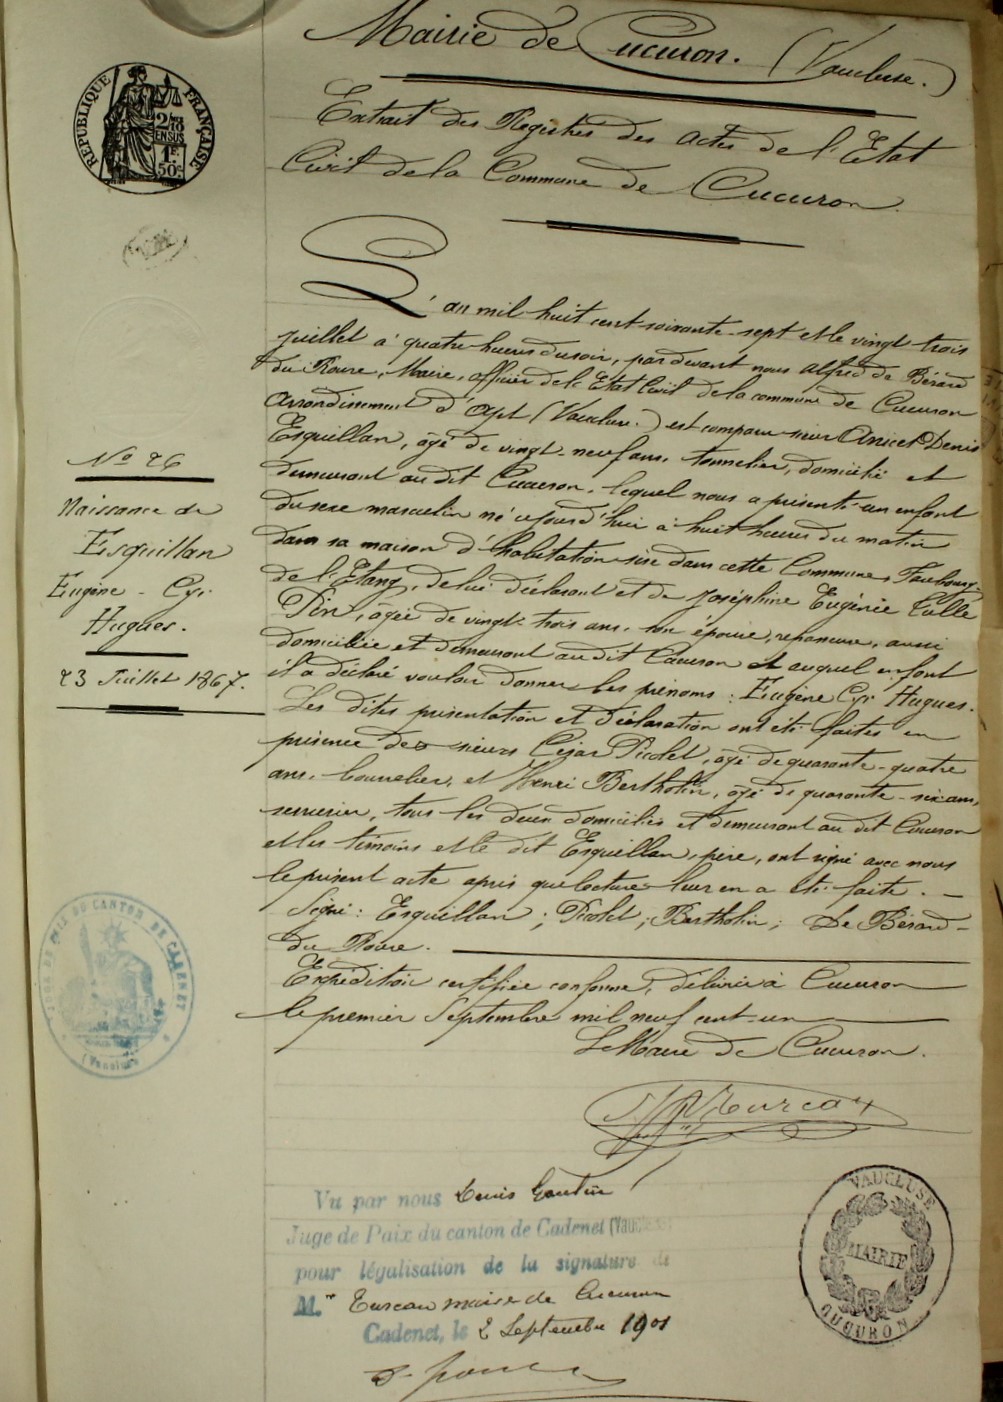 Mairie de Cucuron. (Vaucluse.)
RÉPUBLIQUE FRANÇAISE
2/10
EN SUS
1F
50c
Extrait des Registres des actes de l'Etat
Civil de la Commune de Cucuron.
L'an mil huit cent soixante-sept et le vingt trois
juillet à quatre heures du soir, par devant nous Alfred de Bérard
du Roure, Maire, officier de l'Etat Civil de la commune de Cucuron
arrondissement d'Apt (Vaucluse.) est comparu sieur Anicet Denis
Esquillan, âgé de vingt-neuf ans, tonnelier, domicilié et
demeurant au dit Cucuron, lequel nous a présenté un enfant
du sexe masculin né cejourd'hui à huit heures du matin
dans sa maison d'habitation sise dans cette Commune, Faubourg
de l'Etang, de lui déclarant et de Joséphine Eugénie Tulle
Pin, âgée de vingt trois ans, son épouse, aussi
domiciliée et demeurant au dit Cucuron et auquel enfant
il a déclaré vouloir donner les prénoms : Eugène Cyr Hugues.
Les dites présentation et déclaration ont été faites en
présence des sieurs César Picolet, âgé de quarante-quatre
ans, bourrelier, et Henri Bertholin, âgé de quarante-six ans,
serrurier, tous les deux domiciliés et demeurant au dit Cucuron
et les témoins et le dit Esquillan, père, ont signé avec nous
le présent acte après que lecture leur en a été faite. —
Signé : Esquillan ; Picolet ; Bertholin ; De Bérard-
du Roure.
Expédition certifiée conforme, délivrée à Cucuron
le premier Septembre mil neuf cent-un
Le Maire de Cucuron.
No 26
Naissance de
Esquillan
Eugène - Cyr
Hugues.
23 Juillet 1867.
JUGE DE PAIX DU CANTON DE CADENET
(Vaucluse)
Vu par nous
Juge de Paix du canton de Cadenet (Vaucluse)
pour légalisation de la signature de
M. Tureau maire de Cucuron
Cadenet, le 2 Septembre 1901
VAUCLUSE
MAIRIE
CUCURON